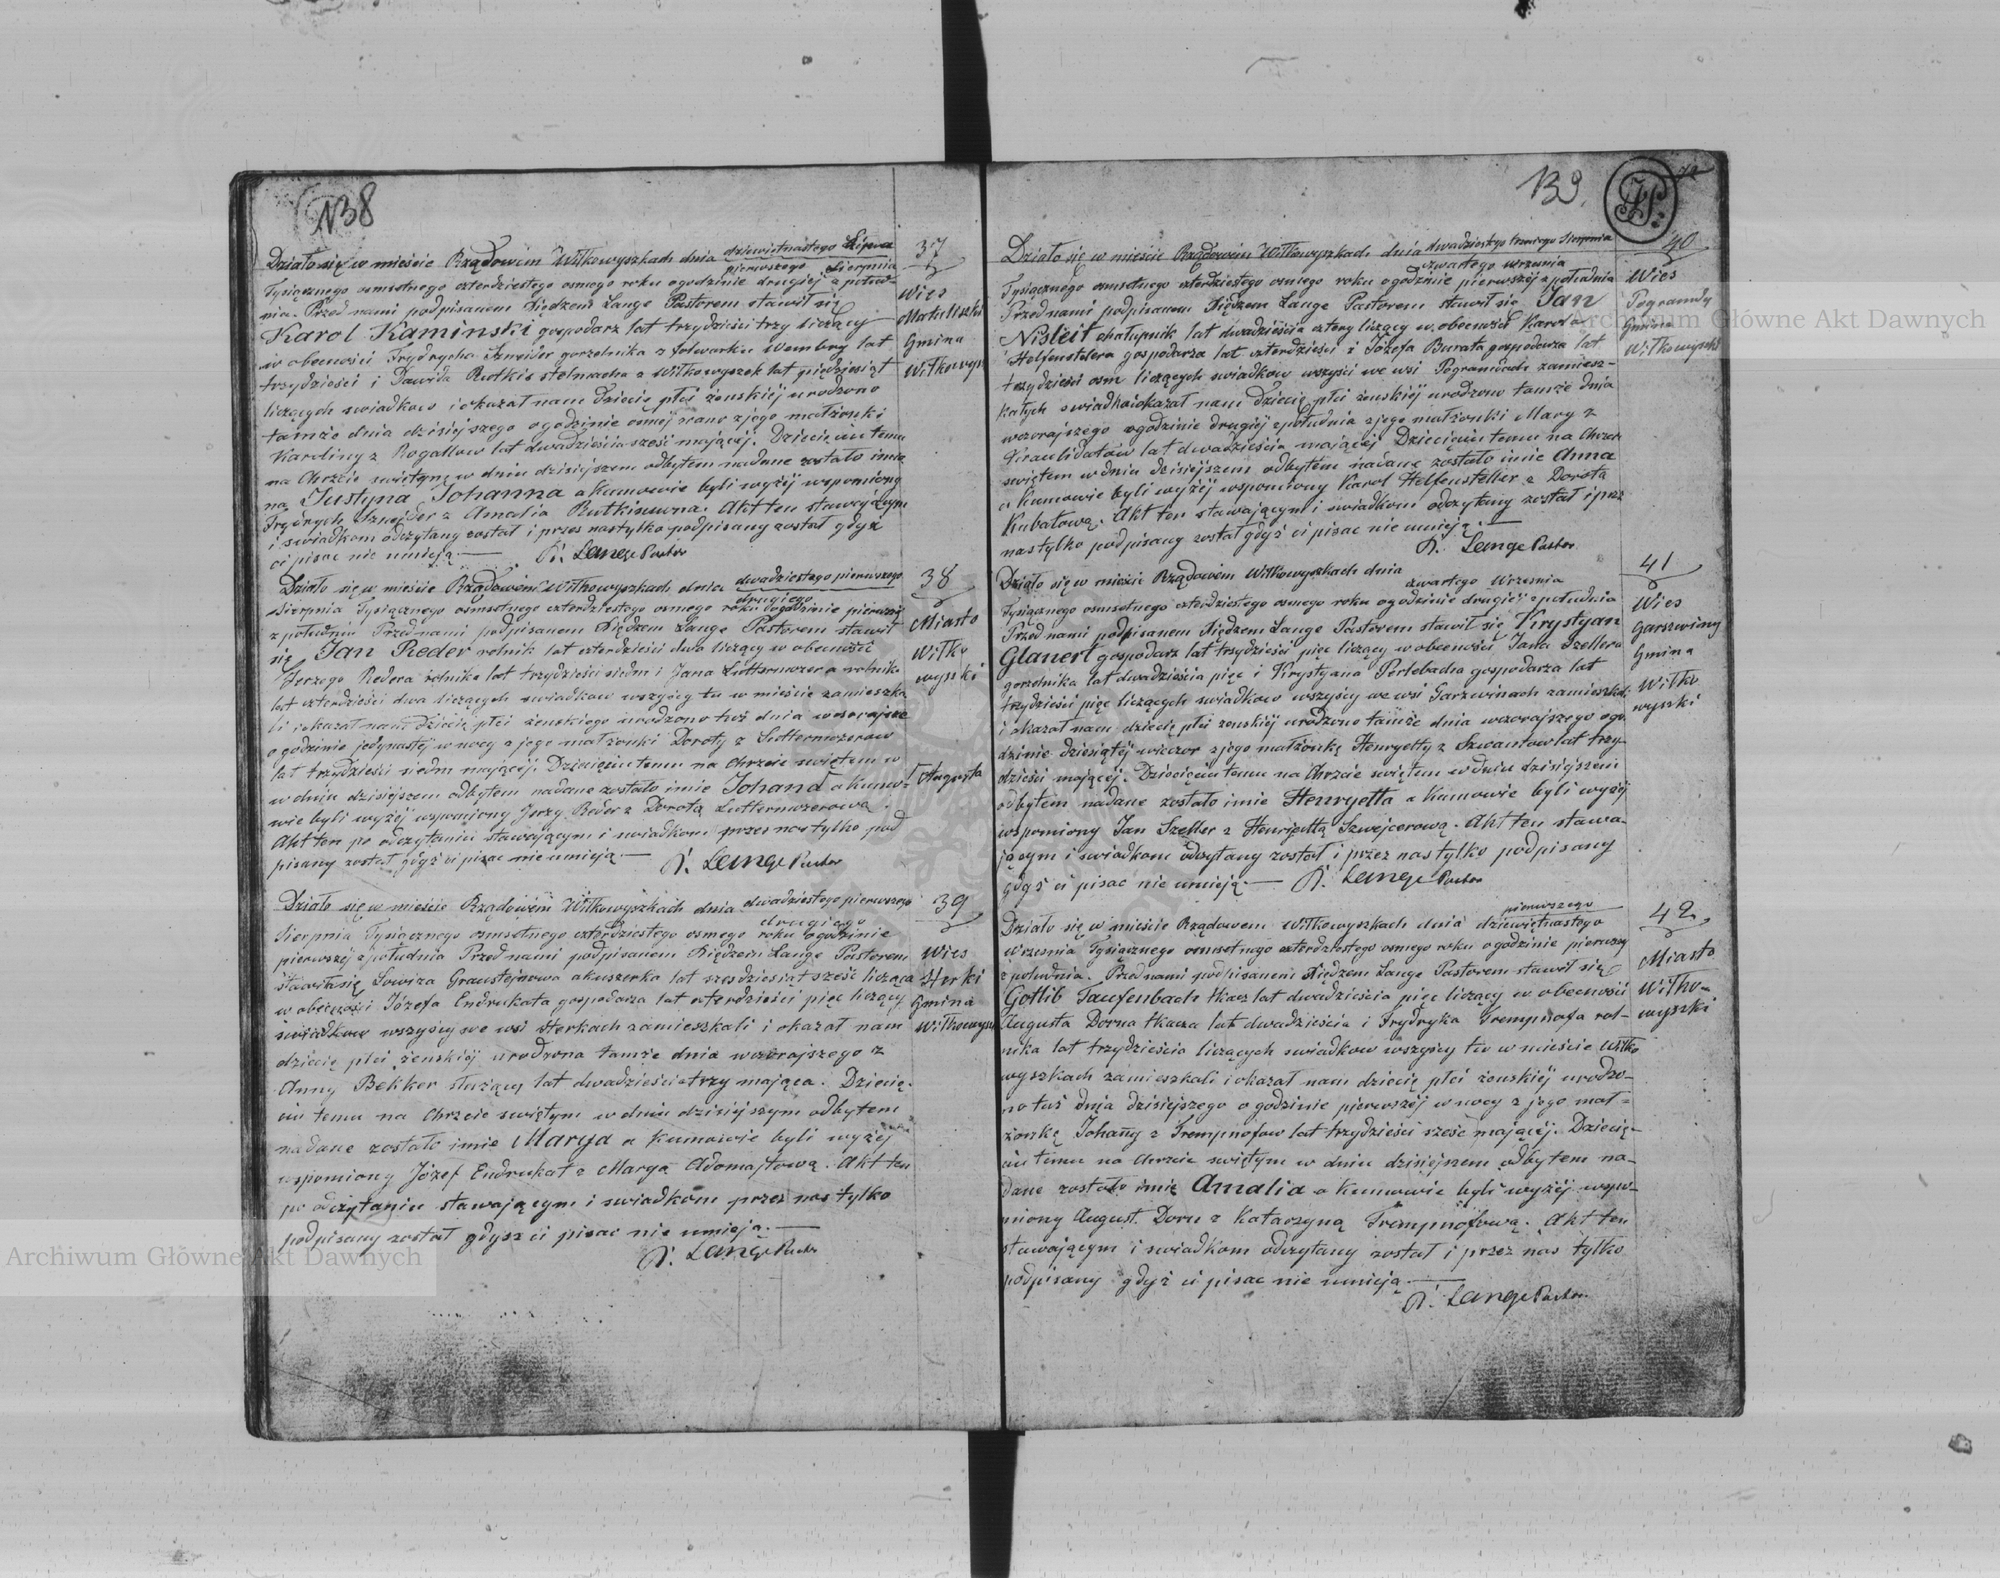 138
37
Wieś
Matuliszki
Gmina
Wiłkowysz
Działo się w mieście Rządowem Wiłkowyszkach dnia dziewiętnastego Lipca
pierwszego Sierpnia
Tysiącznego osmsetnego czterdziestego osmego roku ogodzinie drugiej z połud-
nia. Przed nami podpisanem Xiędzem Lange Pastorem stawił się
Karol Kaminski gospodarz lat trzydzieści trzy liczący
w obecności Frydrycha Sznejder gorzelnika z folwarku Wembry lat
trzydzieści i Dawida Rutkis stelmacha z Wiłkowyszek lat piędziesiąt
liczących swiadkow i okazał nam dziecię płci żenskiéj urodzono
tamże dnia dzisiejszego ogodzinie osmej rano zjego małżonki
Karoliny z Rogallow lat dwadzieścia sześć mającéj. Dziecięciu temu
na Chrzcie swiętym w dniu dzisiejszem odbytem nadane zostało imie
na Justyna, Johanna a Kumowie byli wyżéj wspomiony
Frydrych Sznejder z Amalia Rutkisowna. Akt ten stawającym
i swiadkom odczytany został i przez nas tylko podpisany został gdyż
ci pisac nie umieją. — Lange Pastor
38
Miasto
Wiłko
wyszki
Działo się w mieście Rządowém Wiłkowyszkach dnia dwadziestego pierwszego
drugiego
Sierpnia Tysiącznego osmsetnego czterdziestego osmego roku ogodzinie pierwszej
z południa Przed nami podpisanem Xiędzem Lange Pastorem stawił
się Jan Reder rolnik lat czterdzieści dwa liczący w obecności
Jerzego Redera rolnika lat trzydzieści siedm i Jana Luttermozera rolnika
lat czterdzieści dwa liczących swiadkow wszyscy tu w mieście zamieszka
li i okazał nam dziecię płci żenskiego urodzono tuż dnia wczorajsze
ogodzinie jedynastej w nocy z jego małżonki Doroty z Luttermozerow
lat trzydzieści siedm mającéj. Dziecięciu temu na chrzcie swiętem w
w dniu dzisiejszem odbytem nadane zostało imie Johana a Kumo-
Augusta
wie byli wyżéj wspomiony Jerzy Reder z Dorotą Luttermozerową.
Akt ten po odczytaniu stawającym i swiadkom przez nas tylko pod
pisany został gdyż ci pisac nie umieją. — Lange Pastor
39
Wieś
Sterki
Gmina
Wiłkowysz
Działo się w mieście Rządowém Wiłkowyszkach dnia dwadziestego pierwszego
drugiego
Sierpnia Tysiącznego osmsetnego czterdziestego osmego roku ogodzinie
pierwszéj zpołudnia Przed nami podpisanem Xiędzem Lange Pastorem
stawiła się Lowiza Graustejnowa akuszerka lat szesdziesiąt sześć licząca
w obecności Józefa Endrukata gospodarza lat czterdzieści pięc liczący
swiadkow wszyscy we wsi Sterkach zamieszkali i okazał nam
dziecię płci żenskiéj urodzona tamże dnia wczorajszego z
Anny Bekker służący lat dwadzieścia trzy mająca. Dziecię-
ciu temu na chrzcie swiętym w dniu dzisiejszym odbytem
nadane zostało imie Marya a Kumowie byli wyżéj
wspomiony Józef Endrukat z Marya Adomajtową. Akt ten
po odczytaniu stawającym i swiadkom przez nas tylko
podpisany został gdysz ci pisac nie umieją. —
Lange Pastor
139.
40
Wieś
Pogramdy
Gmina
Wiłkowyszki
Działo się w mieście Rządowém Wiłkowyszkach dnia dwadziestego trzeciego Sierpnia
czwartego wrzesnia
Tysiącznego osmsetnego czterdziestego osmego roku ogodzinie pierwszéj zpołudnia
Przed nami podpisanem Xiędzem Lange Pastorem stawił się Jan
Nisleit chałupnik lat dwadzieścia cztery liczący w obecności Karola
Helfenstelera gospodarza lat czterdzieści i Józefa Burata gospodarza lat
trzydzieści osm liczących swiadkow wszyści we wsi Pogramdach zamiesz-
kałych swiadka i okazał nam dziecię płci żenskiéj urodzono tamże dnia
wczorajszego ogodzinie drugiéj zpołudnia zjego małżonki Mary z
Kraulidatow lat dwadzieścia mającéj Dziecięciu temu na Chrzcie
swiętem w dniu dzisiejszem odbytem nadane zostało imie Anna
a Kumowie byli wyżéj wspomiony Karol Helfensteller z Dorota
Kubatową. Akt ten stawającym i swiadkom odczytany został i prze
nas tylko podpisany został gdyż ci pisac nie umieją. —
Lange Pastor
41
Wieś
Garszwiny
Gmina
Wiłko
wyszki
Działo się w mieście Rządowém Wiłkowyszkach dnia
czwartego Wrzesnia
Tysiącznego osmsetnego czterdziestego osmego roku ogodzinie drugiéj zpołudnia
Przed nami podpisanem Xiędzem Lange Pastorem stawił się Krystyan
Glanert gospodarz lat trzydzieści pięc liczący w obecności Jana Szellera
gorzelnika lat dwadzieścia pięc i Krystyana Perlebacha gospodarza lat
trzydzieści pięc liczących swiadkow wszyscy we wsi Garzwinach zamieszkał
i okazał nam dziecię płci żenskiéj urodzono tamże dnia wczorajszego ogo
dzinie dziesiątéj wieczor zjego małżonkę Henryetty z Szwantow lat trzy-
dzieści mającéj. Dziecięciu temu na Chrzcie swiętem w dniu dzisiejszem
odbytem nadane zostało imie Henryetta a Kumowie byli wyżéj
wspomiony Jan Szeller z Henryettą Szwejcerową. Akt ten stawa-
jącym i swiadkom odczytany został i przez nas tylko podpisany
gdyż ci pisac nie umieją. — Lange Pastor
42
Miasto
Wiłko-
wyszki
pierwszego
Działo się w mieście Rządowem Wiłkowyszkach dnia dziewiętnastego
Wrzesnia Tysiącznego osmsetnego czterdziestego osmego roku ogodzinie pierwszy
z południa. Przed nami podpisanem Xiędzem Lange Pastorem stawił się
Gotlib Taufenbach tkacz lat dwadzieścia pięc liczący w obecności
Augusta Dorna tkacza lat dwadzieścia i Frydryka Trempnofa rol-
nika lat trzydzieścia liczących swiadkow wszyscy tu w mieście Wiłko
wyszkach zamieszkali i okazał nam dziecię płci żenskiéj urodzo-
no tuż dnia dzisiejszego ogodzinie pierwszéj w nocy z jego mał-
żonkę Johany z Trempnofow lat trzydzieści sześc mającéj. Dziecię-
ciu temu na chrzcie swiętym w dniu dzisiejszem odbytem na-
dane zostało imie Amalia a Kumowie byli wyżéj wspo-
miony August Dorn z Katarzyną Trempnofową. Akt ten
stawającym i swiadkom odczytany został i przez nas tylko
podpisany gdyż ci pisac nie umieją. —
Lange Pastor
Archiwum Główne Akt Dawnych
Archiwum Główne Akt Dawnych